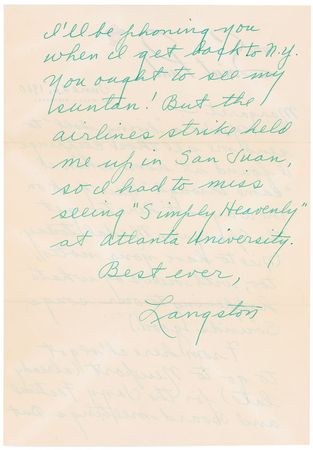 I'll be phoning you
when I get back to N.Y.
You ought to see my
suntan! But the
airlines strike held
me up in San Juan,
so I had to miss
seeing "Simply Heavenly"
at Atlanta University.
Best ever,
Langston